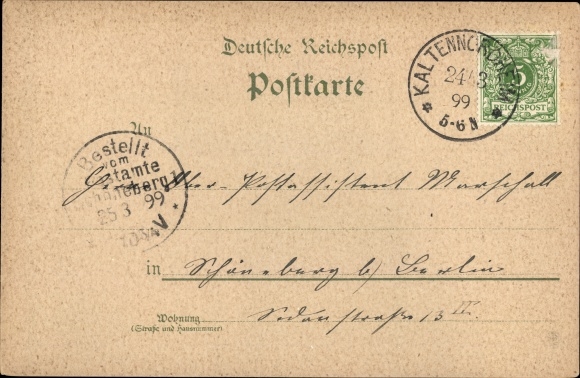 Deutsche Reichspost
Postkarte
KALTENNORDHEIM
24 3
99
5-6 N
5
REICHSPOST
An
Bestellt
vom
Postamte
Schöneberg 1
25 3 99
V
Herrn Ober-Postassistent Marschall
in Schöneberg b/ Berlin
Wohnung Sedanstraße 13 III.
(Straße und Hausnummer)